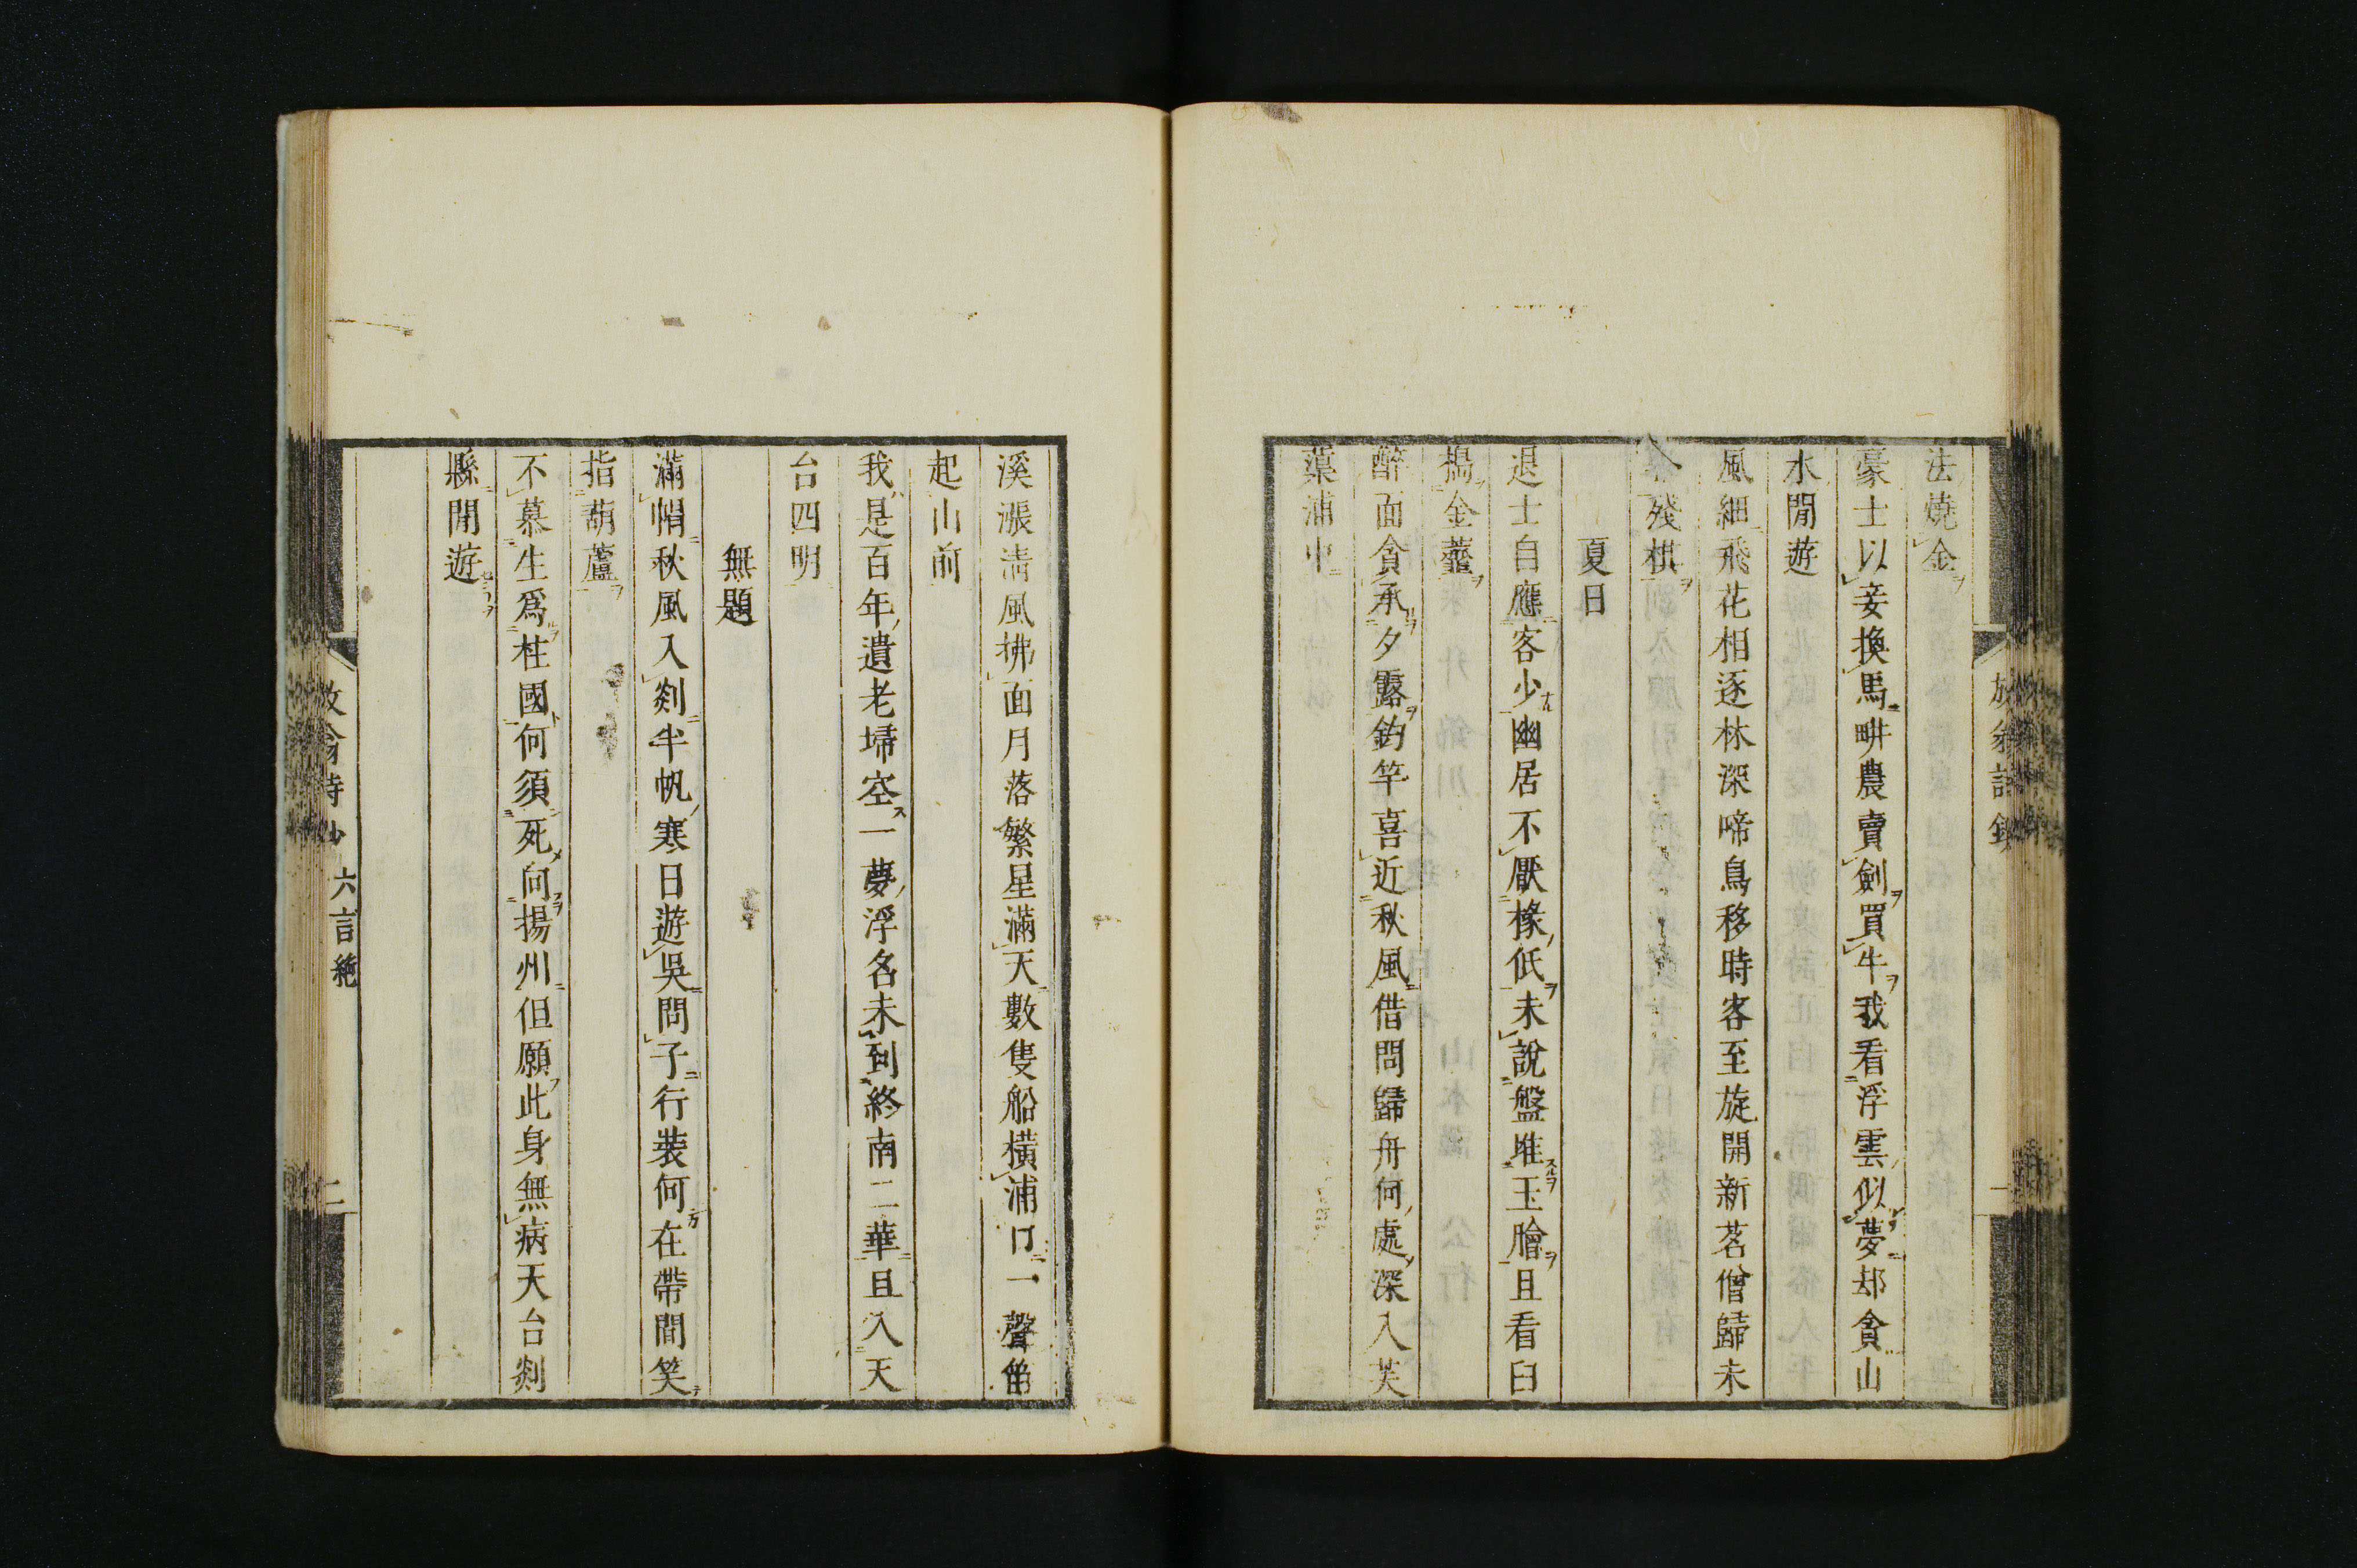 法燒金
豪士以妾換馬畊農賣劍買牛我看浮雲似夢却貪山
水閒遊
風細飛花相逐林深啼鳥移時客至旋開新茗僧歸未
殘棋
夏日
退士自應客少幽居不厭椽低未說盤堆玉膾且看臼
搗金虀
醉面貪承夕露釣竿喜近秋風借問歸舟何處深入芙
蕖浦中
溪漲淸風拂面月落繁星滿天數隻船橫浦口一聲笛
起山前
我是百年遺老埽空一夢浮名未到終南二華且入天
台四明
無題
滿帽秋風入剡半帆寒日遊吳問子行裝何在帶間笑
指葫蘆
不慕生爲柱國何須死向揚州但願此身無病天台剡
縣閒遊
放翁詩鈔 六言絶 二